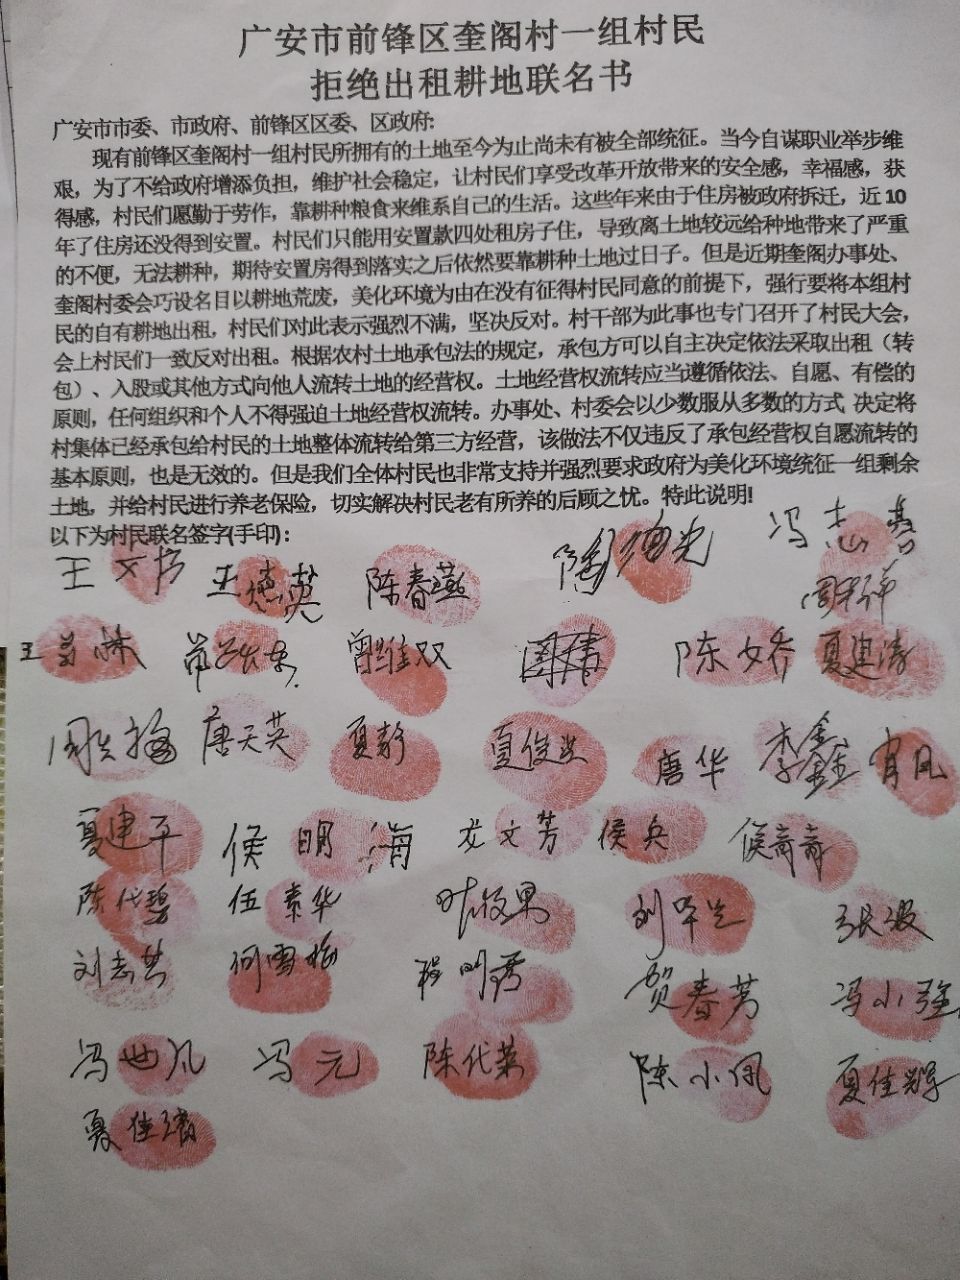 广安市前锋区奎阁村一组村民
拒绝出租耕地联名书
广安市市委、市政府、前锋区区委、区政府:
现有前锋区奎阁村一组村民所拥有的土地至今为止尚未有被全部统征。当今自谋职业举步维
艰，为了不给政府增添负担，维护社会稳定，让村民们享受改革开放带来的安全感，幸福感，获
得感，村民们愿勤于劳作，靠耕种粮食来维系自己的生活。这些年来由于住房被政府拆迁，近10
年了住房还没得到安置。村民们只能用安置款四处租房子住，导致离土地较远给种地带来了严重
的不便，无法耕种，期待安置房得到落实之后依然要靠耕种土地过日子。但是近期奎阁办事处、
奎阁村委会巧设名目以耕地荒废，美化环境为由在没有征得村民同意的前提下，强行要将本组村
民的自有耕地出租，村民们对此表示强烈不满，坚决反对。村干部为此事也专门召开了村民大会，
会上村民们一致反对出租。根据农村土地承包法的规定，承包方可以自主决定依法采取出租（转
包）、入股或其他方式向他人流转土地的经营权。土地经营权流转应当遵循依法、自愿、有偿的
原则，任何组织和个人不得强迫土地经营权流转。办事处、村委会以少数服从多数的方式 决定将
村集体已经承包给村民的土地整体流转给第三方经营，该做法不仅违反了承包经营权自愿流转的
基本原则，也是无效的。但是我们全体村民也非常支持并强烈要求政府为美化环境统征一组剩余
土地，并给村民进行养老保险，切实解决村民老有所养的后顾之忧。特此说明!
以下为村民联名签字(手印)：
王德英 陈春燕 陶德光
曾维双 周伟 陈女乔 夏建涛
唐天英 夏静 夏俊 唐华 李鑫 肖凤
夏建平 侯明海 龙文芳 侯兵 侯奇奇
陈代碧 伍素华 叶俊果 刘 张波
刘志 何雪梅 程明秀 贺春芳 冯小强
冯世凡 冯元 陈代英 陈小凤 夏佳辉
夏佳靖